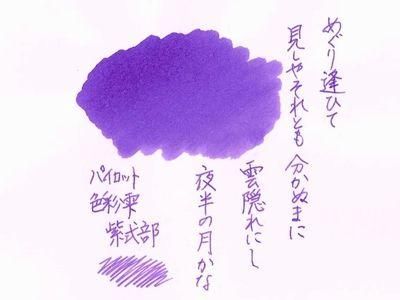 めぐり逢ひて
見しやそれとも 分かぬまに
雲隠れにし
夜半の月かな
パイロット
色彩雫
紫式部